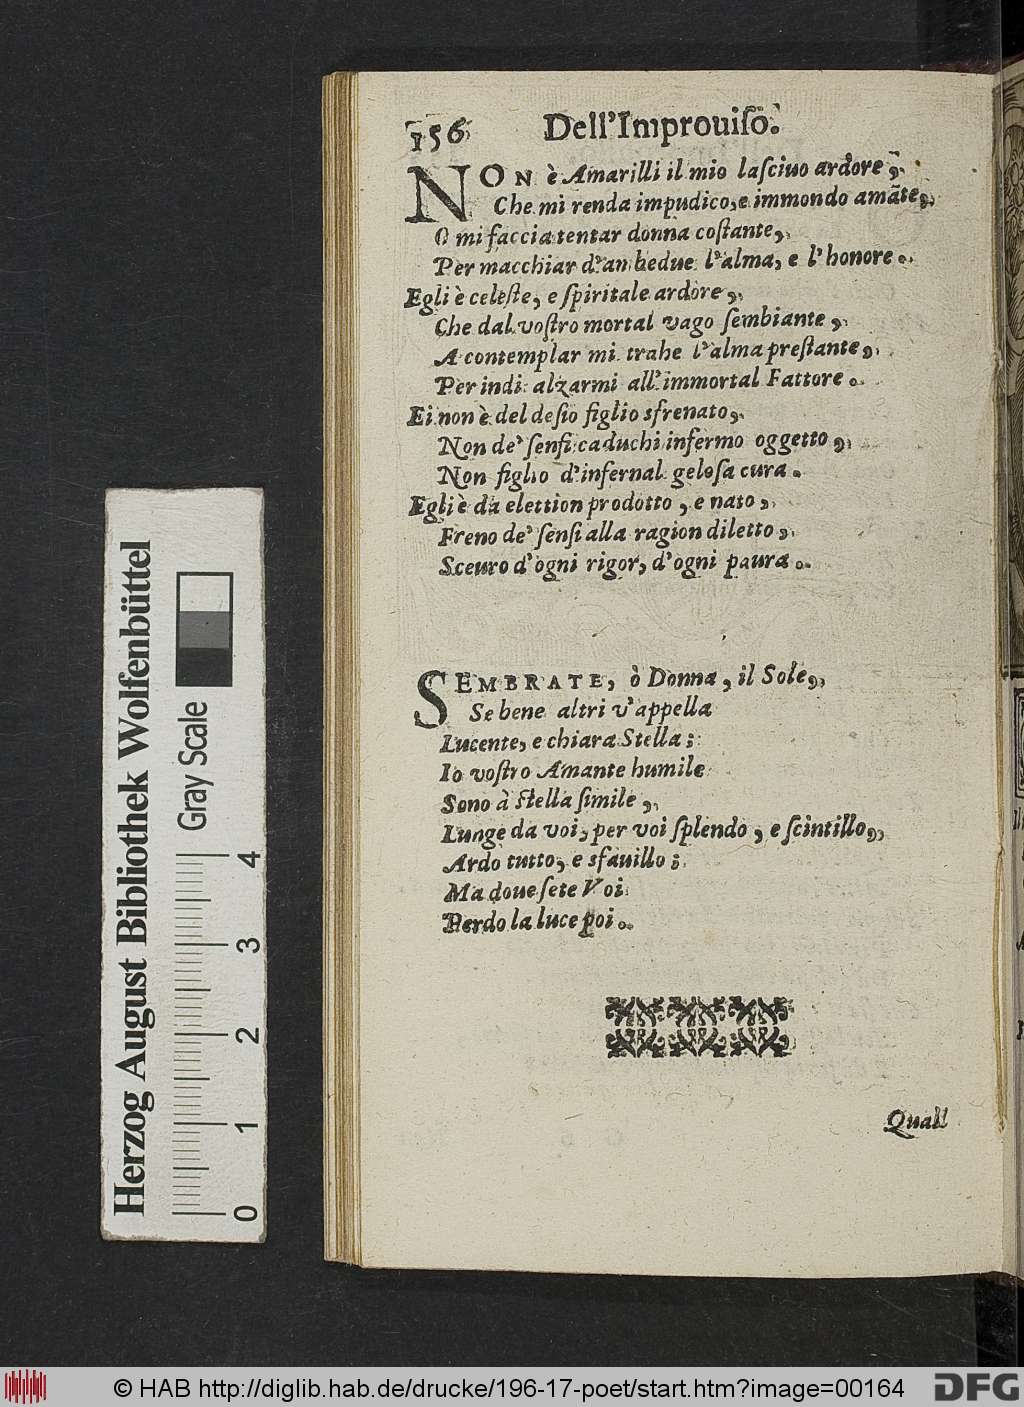 156 Dell'Improuiſo.
NON è Amarilli il mio laſciuo ardore,
Che mi renda impudico, e immondo amãte,
O mi faccia tentar donna coſtante,
Per macchiar d'ambedue l'alma, e l'honore.
Egli è celeſte, e ſpiritale ardore,
Che dal voſtro mortal vago ſembiante,
A contemplar mi trahe l'alma preſtante,
Per indi alzarmi all'immortal Fattore.
Ei non è del deſio figlio sfrenato,
Non de' ſenſi caduchi infermo oggetto,
Non figlio d'infernal geloſa cura.
Egli è da elettion prodotto, e nato,
Freno de' ſenſi alla ragion diletto,
Sceuro d'ogni rigor, d'ogni paura.
SEMBRATE, ò Donna, il Sole,
Se bene altri v'appella
Lucente, e chiara Stella;
Io voſtro Amante humile
Sono à ſtella ſimile,
Lunge da voi, per voi ſplendo, e ſcintillo,
Ardo tutto, e sfauillo;
Ma doue ſete Voi
Perdo la luce poi.
Quall
Herzog August Bibliothek Wolfenbüttel
Gray Scale
0 1 2 3 4
© HAB http://diglib.hab.de/drucke/196-17-poet/start.htm?image=00164
DFG